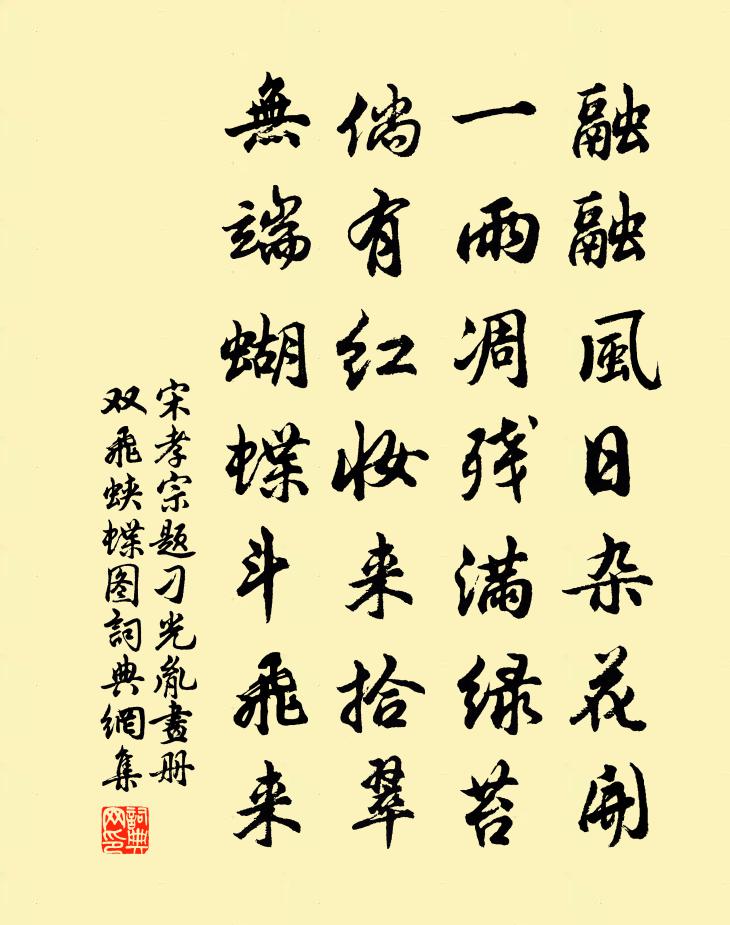 融融風日杂花開
一雨凋残满绿苔
倘有红妆来拾翠
無端蝴蝶斗飛来
宋孝宗题刁光胤畫册
双飛蛱蝶图詞典網集
詞典网印